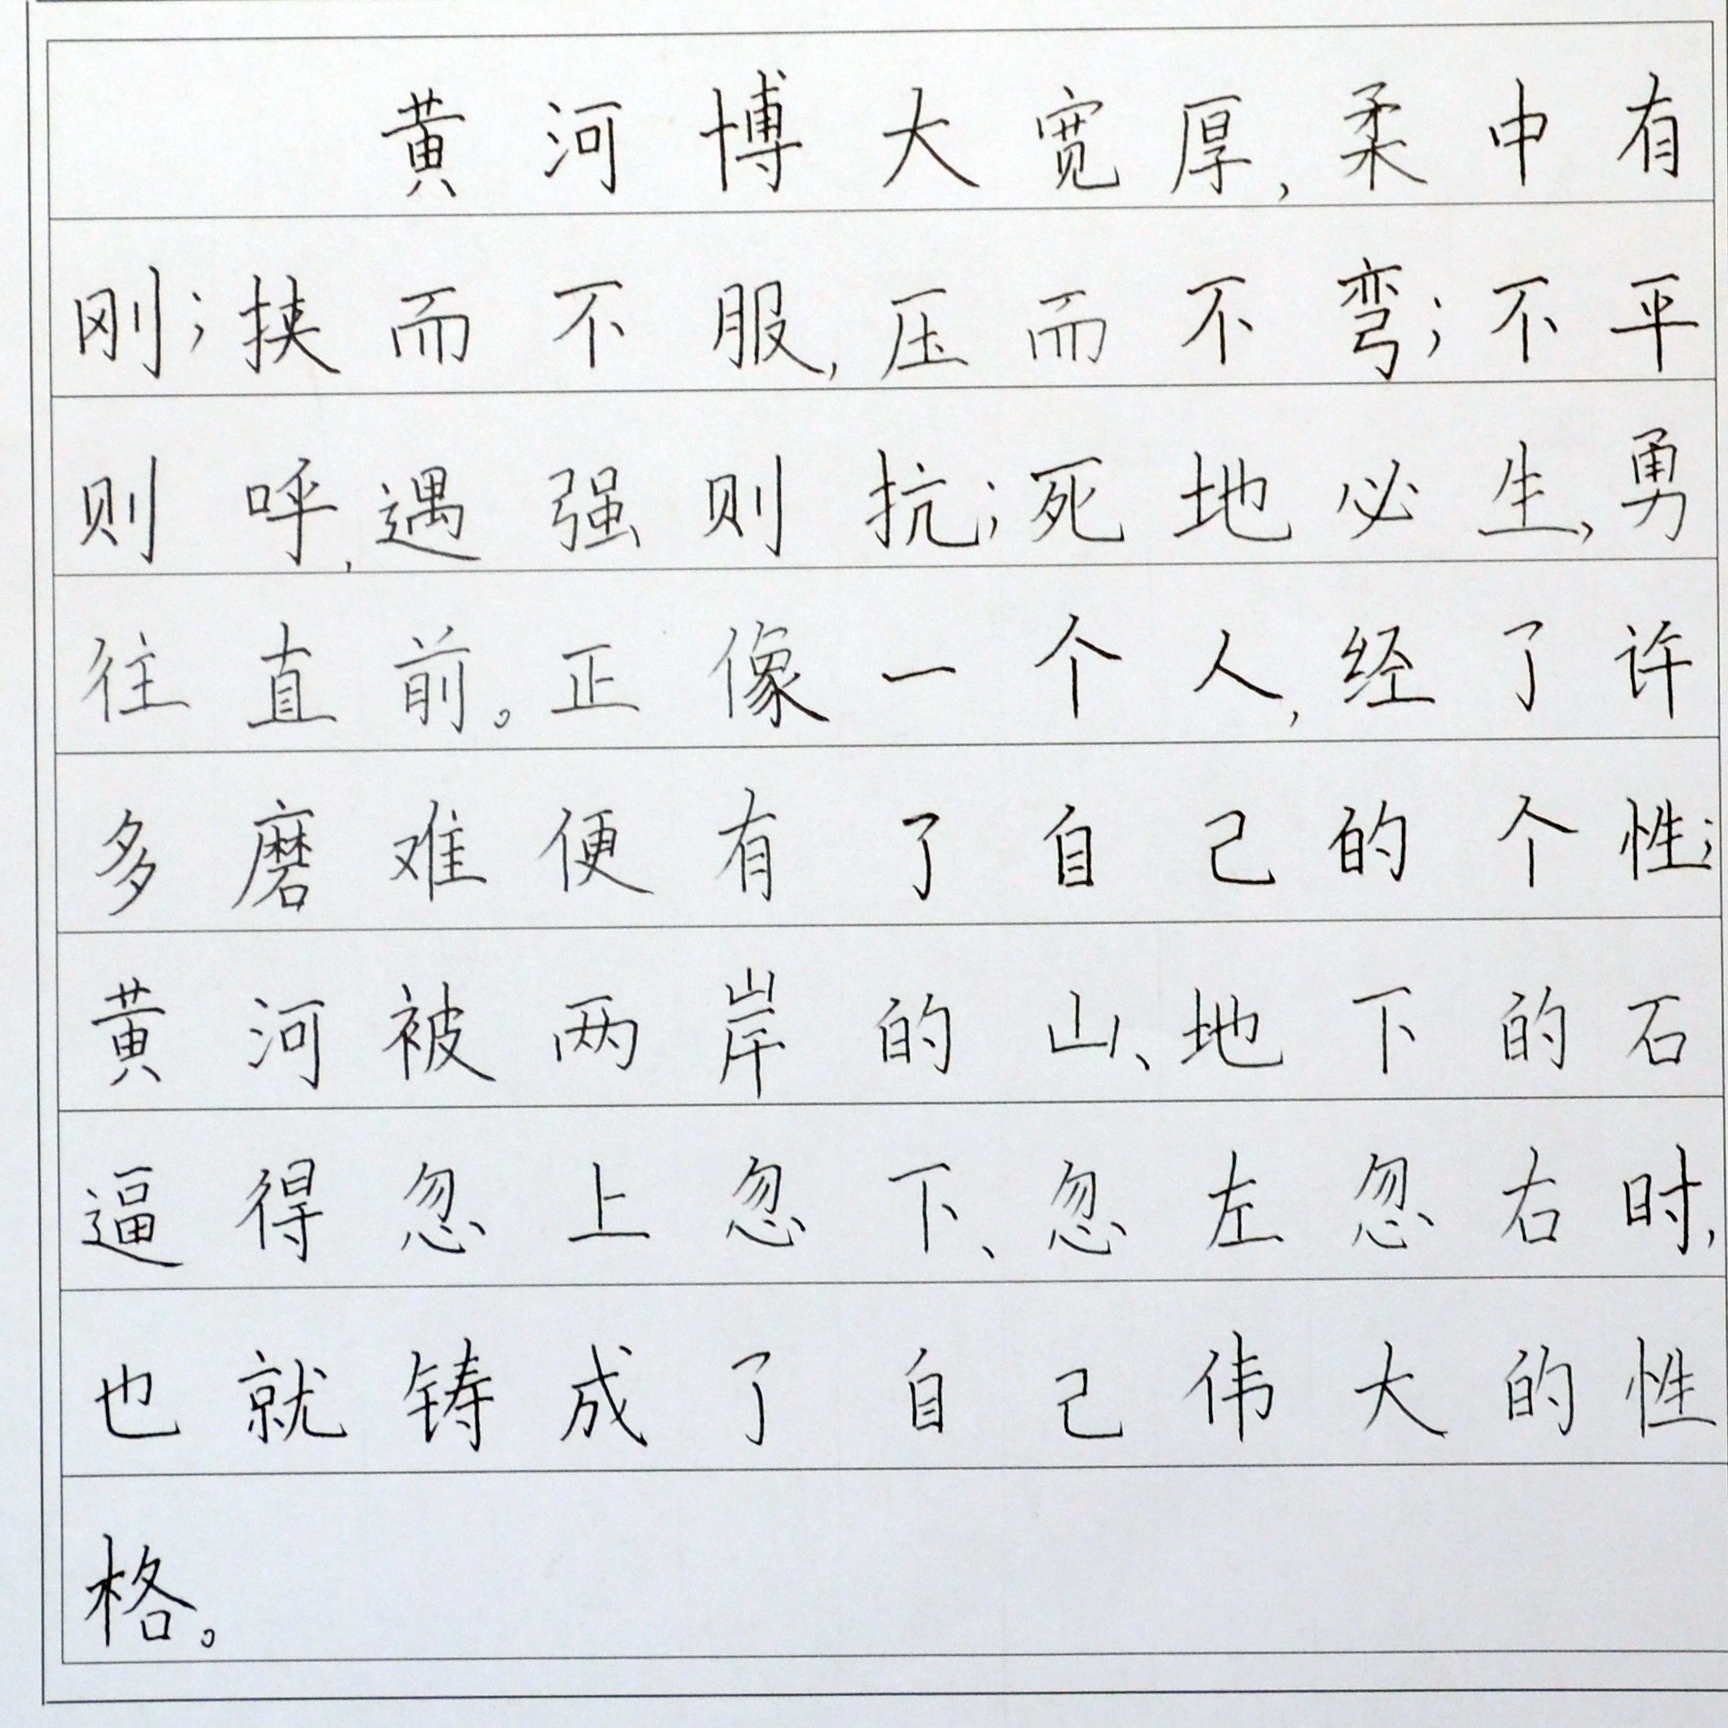 黄河博大宽厚,柔中有
刚;挟而不服,压而不弯;不平
则呼,遇强则抗;死地必生,勇
往直前。正像一个人,经了许
多磨难便有了自己的个性;
黄河被两岸的山、地下的石
逼得忽上忽下、忽左忽右时,
也就铸成了自己伟大的性
格。